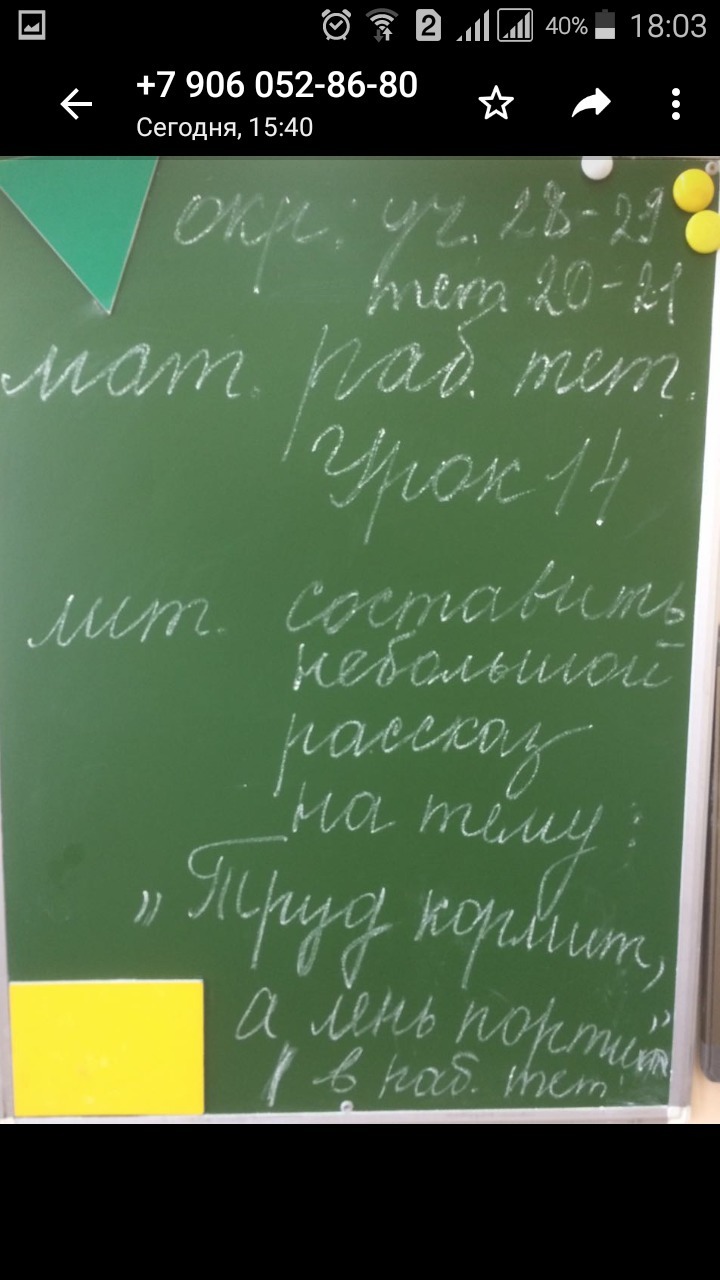 40% 18:03
2
+7 906 052-86-80
Сегодня, 15:40
окр.: уч. 28-29
тет 20-21
мат. раб. тет.
Урок 14
лит. составить
небольшой
рассказ
на тему:
„Труд кормит,
а лень портит”
в раб. тет